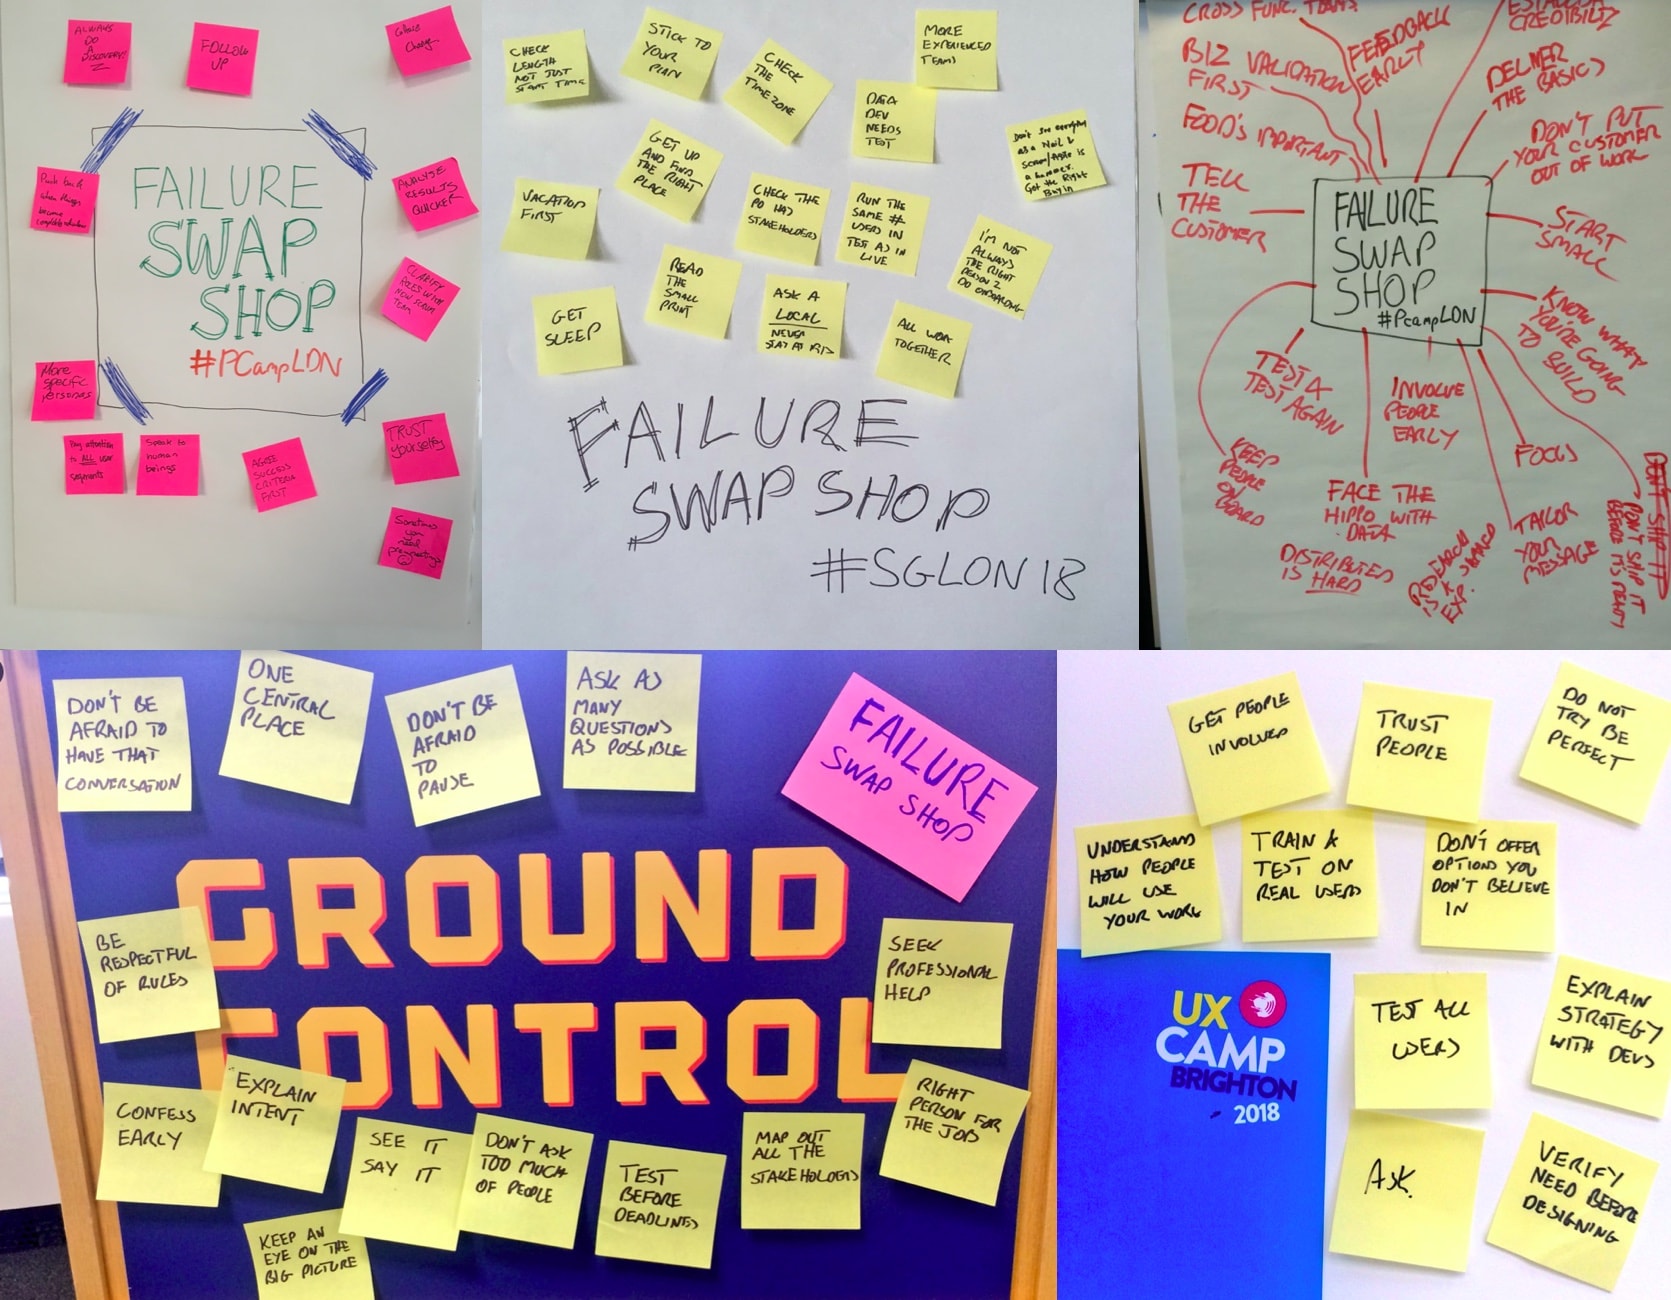 ALWAYS
DO
A
DISCOVERY!
FOLLOW
UP
Change
Push back
when things
become
ANALYSE
RESULTS
QUICKER
FAILURE
SWAP
SHOP
#PCampLDN
CLARIFY
ROLES WITH
NEW
TEAM
More
specific
personas
Pay attention
to ALL user
segments
Speak to
human
beings
AGREE
SUCCESS
CRITERIA
FIRST
TRUST
yourself
Sometimes
you
need
CHECK
LENGTH
NOT JUST
START TIME
STICK TO
YOUR
PLAN
CHECK
THE
TIMEZONE
MORE
EXPERIENCED
TEAMS
DATA
DEV
NEEDS
TEST
GET UP
AND FIND
THE RIGHT
PLACE
Don't see everything
as a Nail &
scrum/Agile is
a hammer.
Get the Right
Buy In
VACATION
FIRST
CHECK THE
PO HAD
STAKEHOLDERS
RUN THE
SAME #
USERS IN
TEST AS IN
LIVE
I'M NOT
ALWAYS
THE RIGHT
PERSON 2
DO ONBOARDING
READ
THE
SMALL
PRINT
GET
SLEEP
ASK A
LOCAL
NEVER
STAY AT
ALL WORK
TOGETHER
FAILURE
SWAP SHOP
#SGLON18
CROSS FUNC. TEAMS
BIZ VALIDATION
FIRST
FOOD'S IMPORTANT
TELL
THE
CUSTOMER
FEEDBACK
EARLY
ESTABLISH
CREDIBILITY
DELIVER
THE BASICS
DON'T PUT
YOUR CUSTOMER
OUT OF WORK
FAILURE
SWAP
SHOP
#PcampLDN
START
SMALL
KNOW WHAT
YOU'RE GOING
TO BUILD
TEST &
TEST AGAIN
INVOLVE
PEOPLE
EARLY
FOCUS
KEEP
PEOPLE
ON
BOARD
FACE THE
HIPPO WITH
DATA
DISTRIBUTED
IS HARD
RESEARCH
EXP.
TAILOR
YOUR
MESSAGE
DON'T SHIP IT
DON'T SHIP IT
BEFORE IT'S READY
DON'T BE
AFRAID TO
HAVE THAT
CONVERSATION
ONE
CENTRAL
PLACE
DON'T BE
AFRAID
TO
PAUSE
ASK AS
MANY
QUESTIONS
AS POSSIBLE
FAILURE
SWAP SHOP
GROUND
CONTROL
BE
RESPECTFUL
OF RULES
SEEK
PROFESSIONAL
HELP
CONFESS
EARLY
EXPLAIN
INTENT
SEE IT
SAY IT
DON'T ASK
TOO MUCH
OF PEOPLE
TEST
BEFORE
DEADLINES
MAP OUT
ALL THE
STAKEHOLDERS
RIGHT
PERSON FOR
THE JOB
KEEP AN
EYE ON THE
BIG PICTURE
GET PEOPLE
INVOLVED
TRUST
PEOPLE
DO NOT
TRY BE
PERFECT
UNDERSTAND
HOW PEOPLE
WILL USE
YOUR WORK
TRAIN &
TEST ON
REAL USERS
DON'T OFFER
OPTIONS YOU
DON'T BELIEVE
IN
UX
CAMP
BRIGHTON
2018
TEST ALL
USERS
EXPLAIN
STRATEGY
WITH DEVS
ASK.
VERIFY
NEED BEFORE
DESIGNING